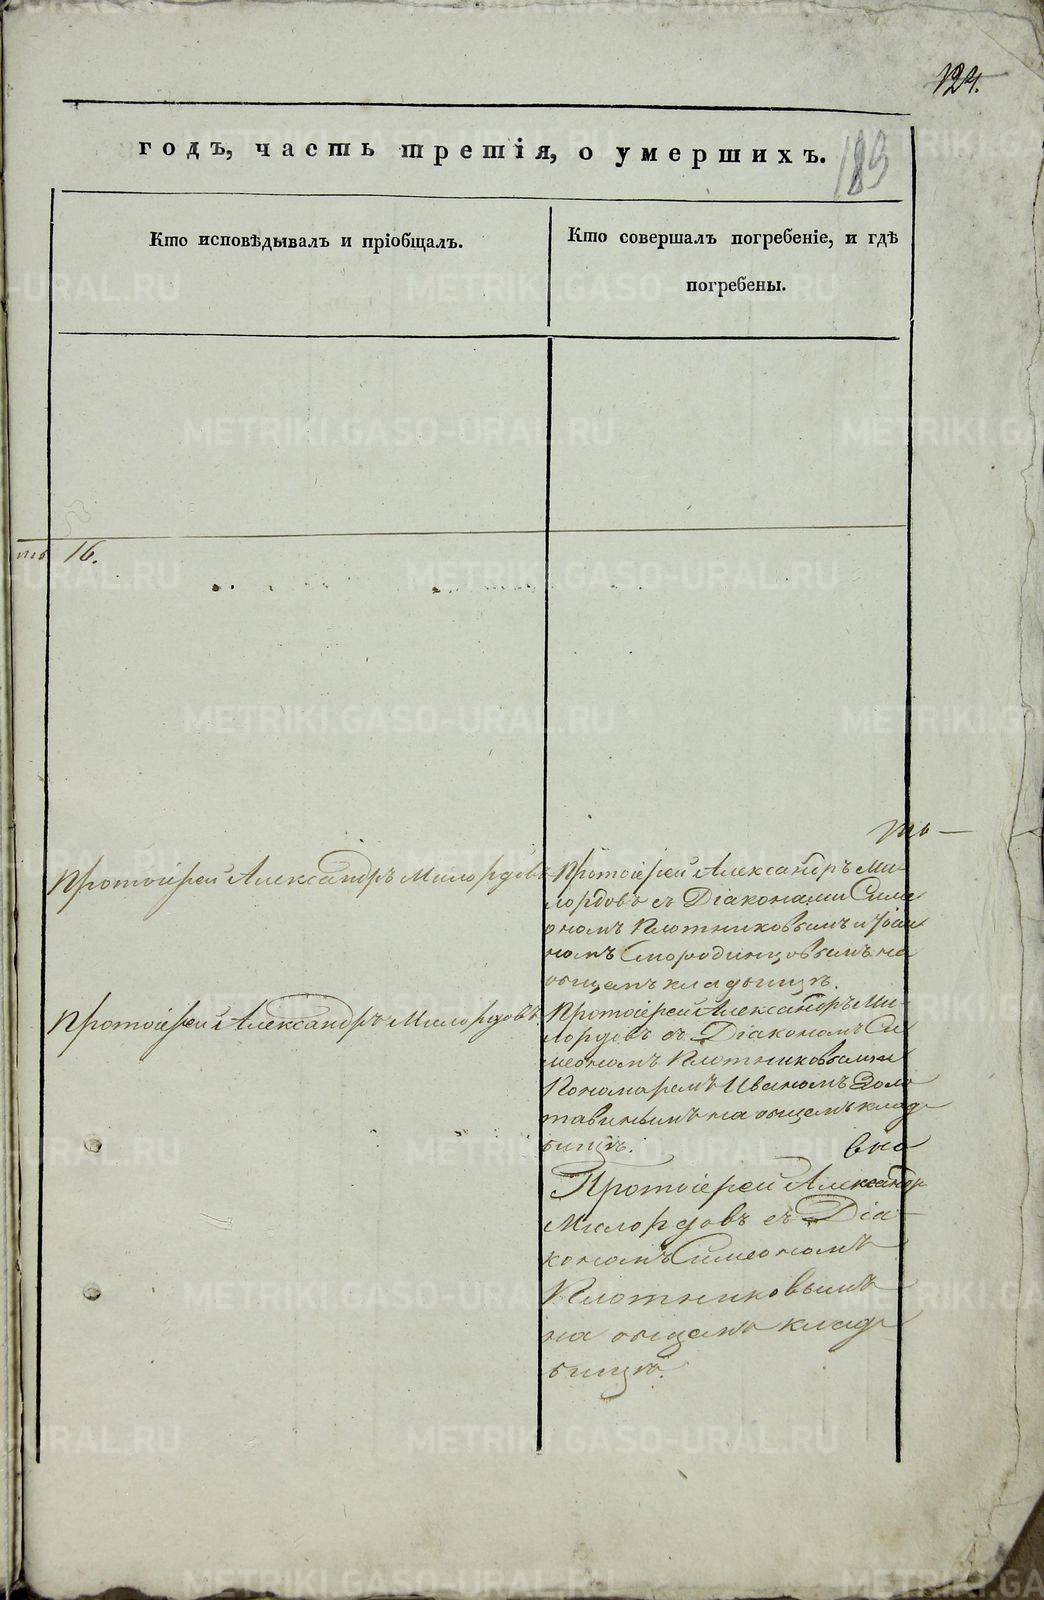 124.
годъ, часть третія, о умершихъ.
183
Кто исповѣдывалъ и пріобщалъ.
Кто совершалъ погребеніе, и гдѣ
погребены.
16.
Протоіерей Александръ Милордовъ
Протоіерей Александръ Ми-
лордовъ съ Діаконами Симе
ономъ Плотниковымъ и Іоан
номъ Смородинцовымъ на
общемъ кладбищѣ.
Протоіерей Александръ Милордовъ.
Протоіерей Александръ Ми-
лордовъ съ Діакономъ Си
меономъ Плотниковымъ и
Пономаремъ Иваномъ Золо
тавинымъ на общемъ клад-
бищѣ.
Протоіерей Александръ
Милордовъ съ Діа-
кономъ Симеономъ
Плотниковымъ
на общемъ клад-
бищѣ.
METRIKI.GASO-URAL.RU